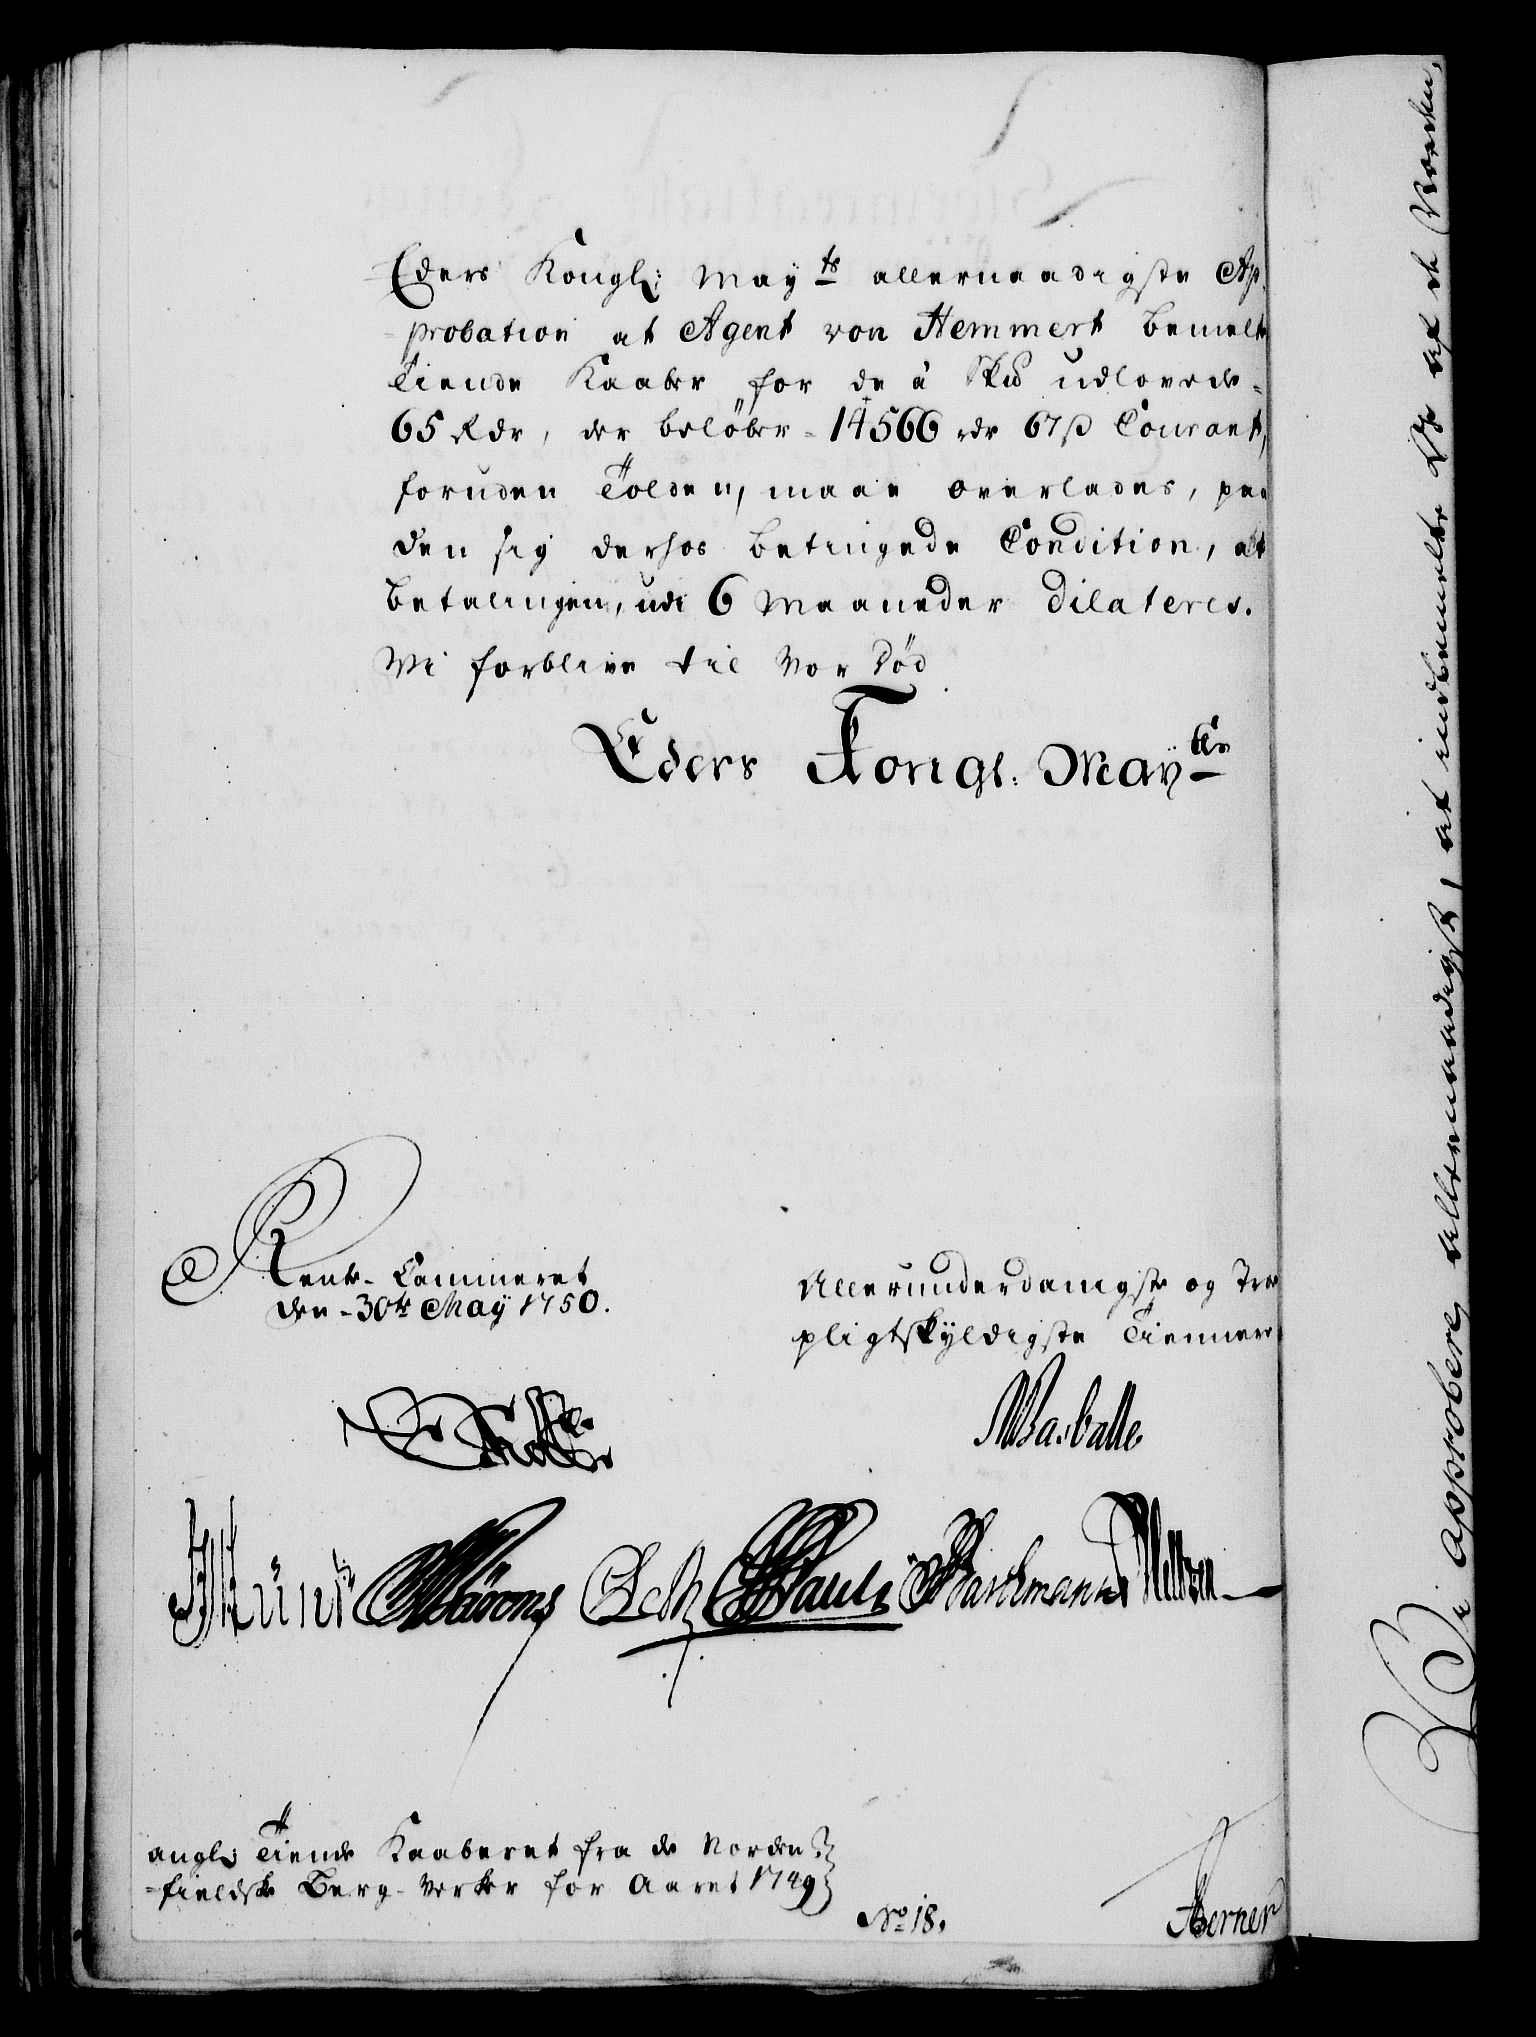 Eders Kongl: May<sup>ts</sup> allernaadigste Ap,
=probation at Agent von Hemmert bemelte
Tiende Kaaber for de á Skd udlovede=
65 Rdr, der beløber = 14566 rdr 67ß Courant,
foruden Tolden, maae overlades, paa
den sig derhos betingede Condition, at
betalingen, udi 6 Maaneder dilateres.
Wi forblive til vor Død
Eders Kongl: May<sup>ts</sup>
Rente-Cammeret
den - 30te May 1750.
Allerunderdanigste og Troe
pligtskyldigste Tienner
angl: Tiende Kaaberet fra de Norden
=fieldske Berg-Verker for Aaret 1749
No 18.
Berner
Wi approbere allernaadigst, at indbemelte Kr af det Norden,